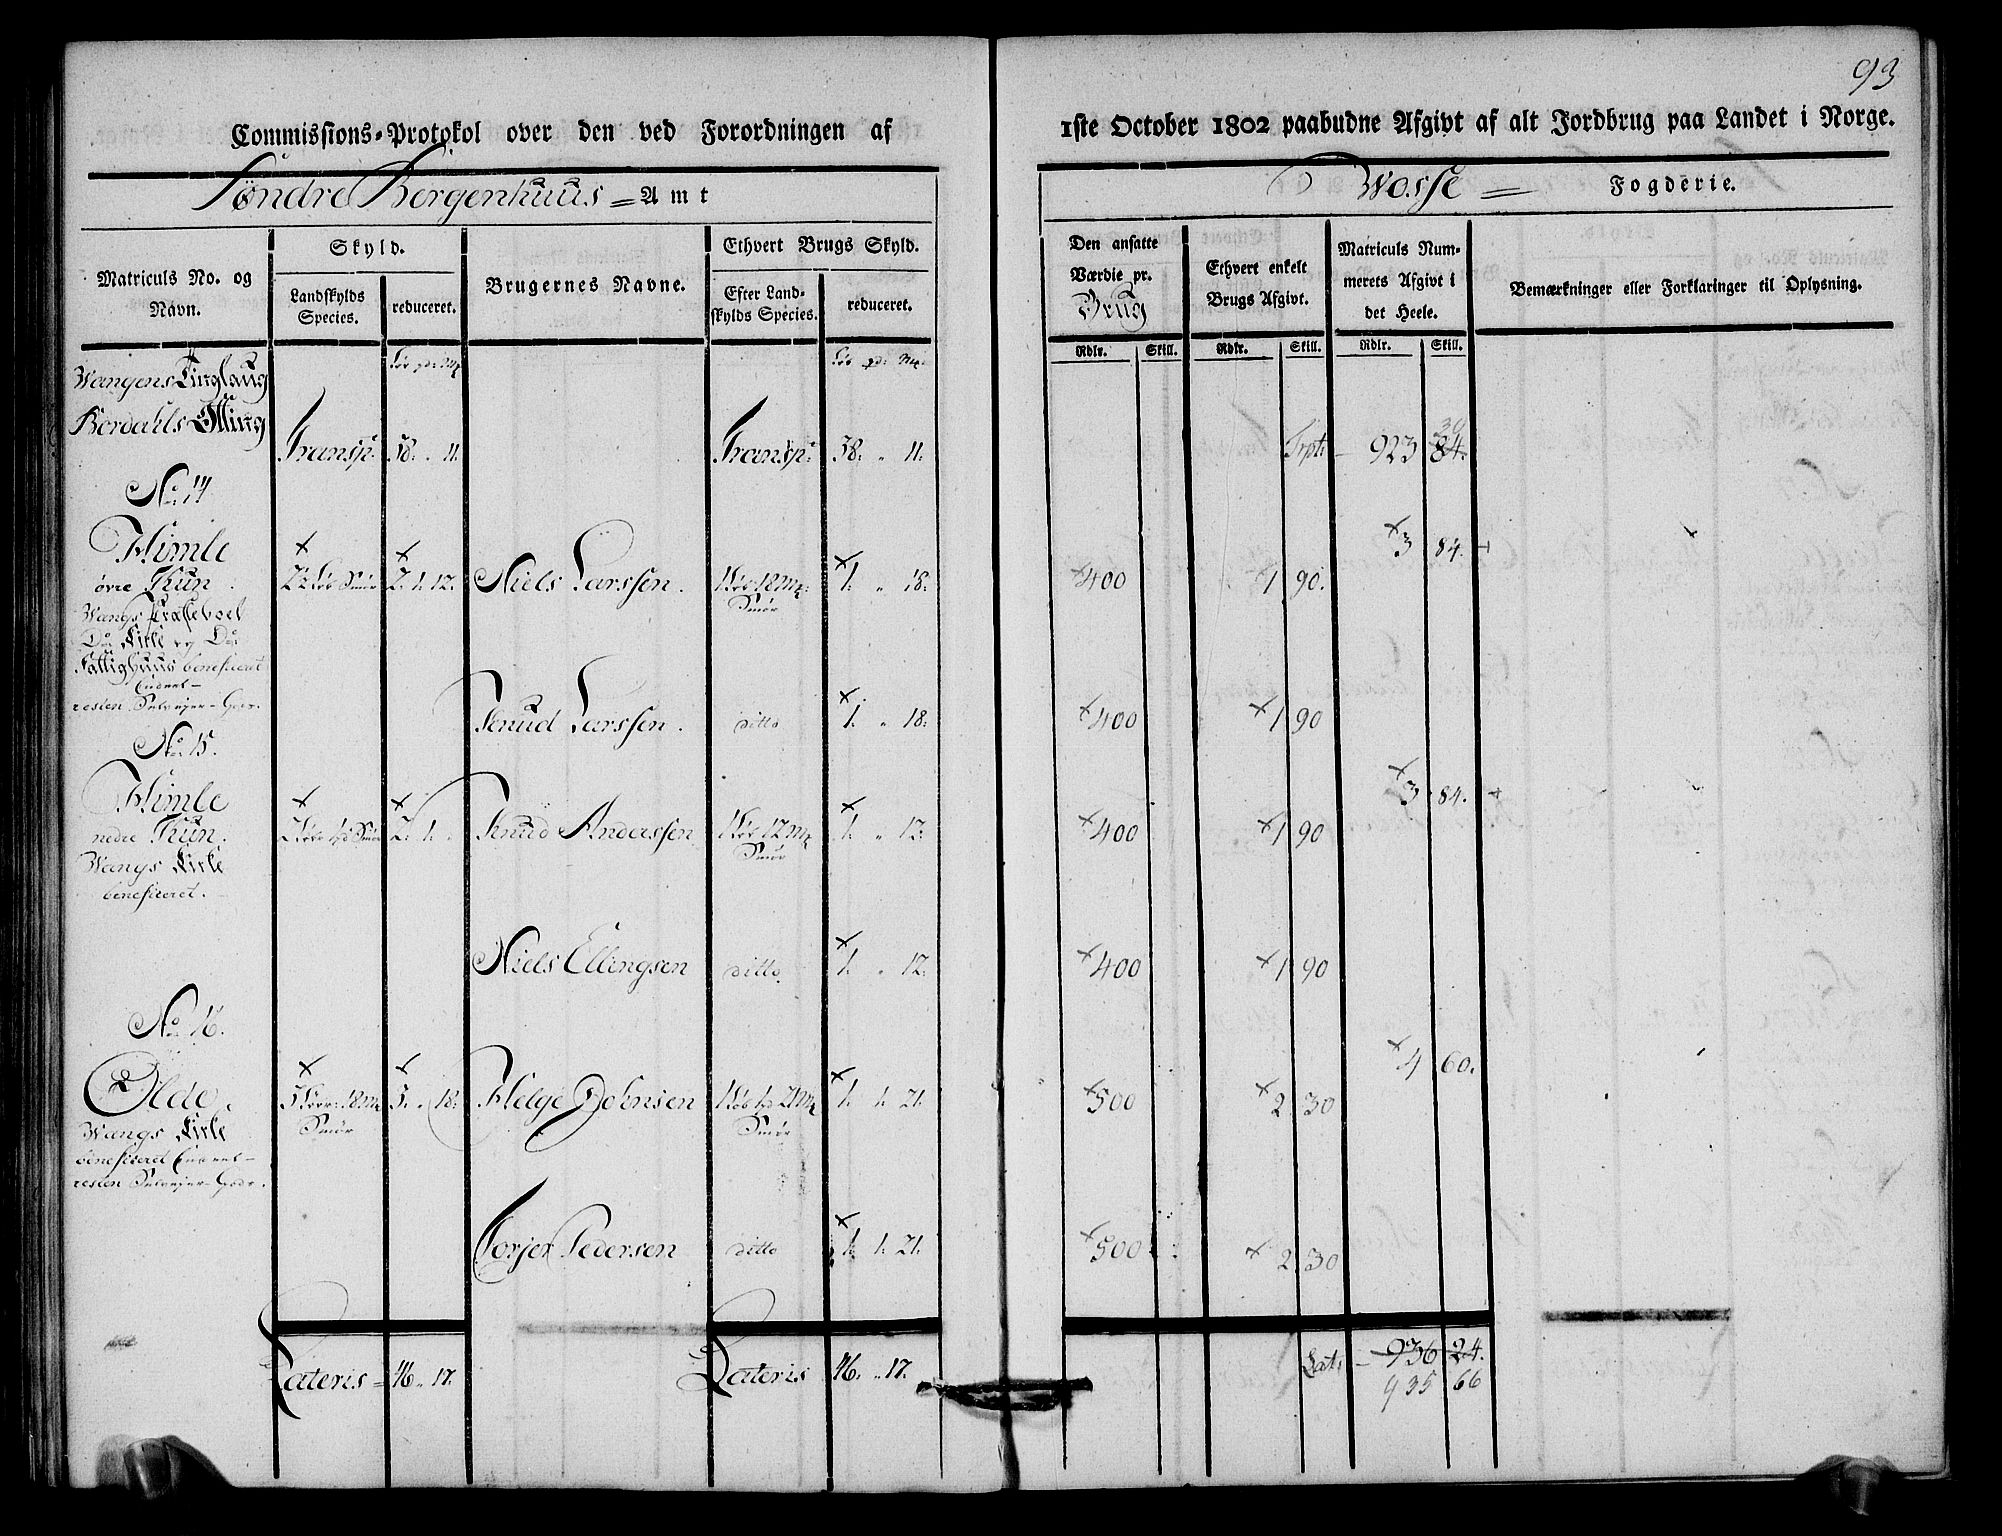 93
Commissions-Protokol over den ved Forordningen af 1ste October 1802 paabudne Afgivt af alt Jordbrug paa Landet i Norge.
Søndre Bergenhuus = Amt
Wosse = Fogderie.
Matriculs No. og Navn.
Skyld.
Landskylds Species.
reduceret.
Brugernes Navne.
Ethvert Brugs Skyld.
Efter Landskylds Species.
reduceret.
Den ansatte Værdie pr. Brug
Ethvert enkelt Brugs Afgivt.
Matriculs Nummerets Afgivt i det Heele.
Bemærkninger eller Forklaringer til Oplysning.
Rdlr. Skill. Rdlr. Skill. Rdlr. Skill.
Wangens Tinglaug
Bordahls Otting
Transp: 38: " 11. Transp: 38: " 11. Trpt. - 923 84. 30
No: 14
Himle 3 84.
øvre Thun. 2½ Løb Smør 2. 1. 12. Niels Larssen. 1 Løb 18 mk: Smør 1. " 18. 400 1 90.
Wangs Præsteboel
Do: Kirke og Do:
Fattighuus beneficeret
resten Selvejer-Gods.
Knud Larssen. ditto 1. " 18. 400 1 90
No: 15.
Himle 3 84.
nedre Thun. 2. 1. " Knud Anderssen 1 Løb 12 mk Smør 1. " 12. 400 1 90
Wangs Kirke
beneficeret.
Niels Ellingsen ditto. 1. " 12. 400 1 90
No: 16.
4 60.
Olde. 3 Løber 18 mk Smør 3. " 18. Helge Johnsen 1 Løb 1 pd 21 mk Smør 1. 1. 21. 500 2 30
Wangs Kirke
beneficeret
resten Selvejer-Gods.
Torjer Pedersen ditto 1. 1. 21. 500 2 30
Lateris = 46 " 17. Lateris 46. " 17. Lat: - 936 24.
935 66